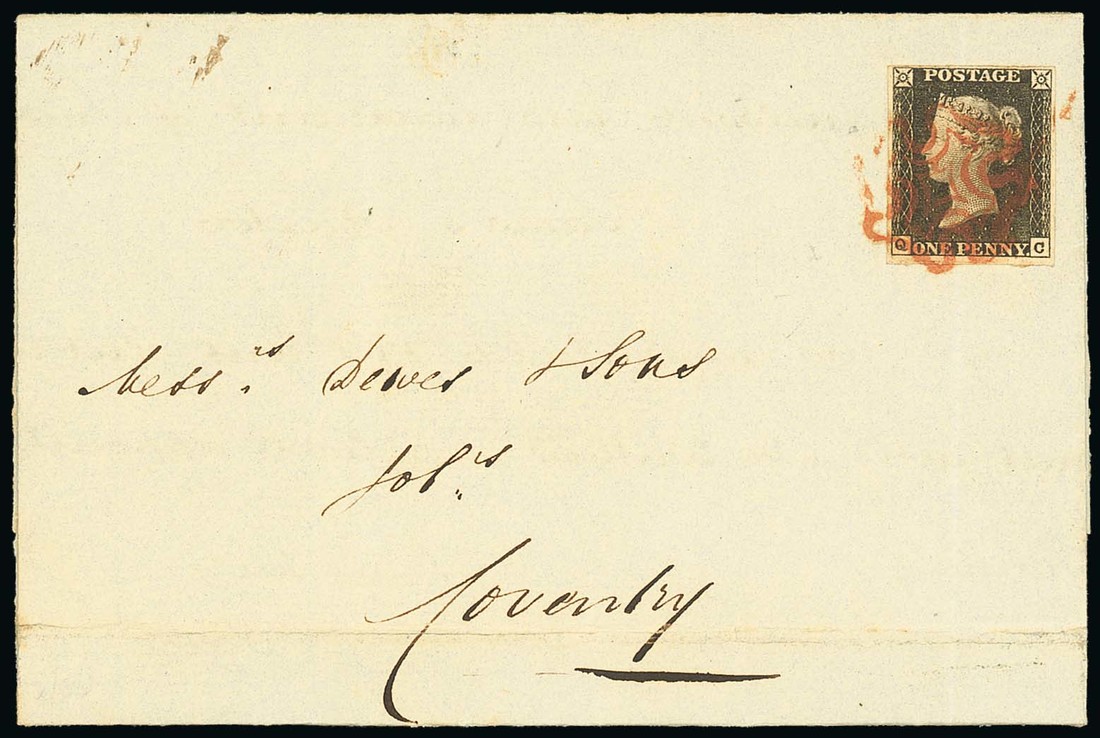 POSTAGE
Q ONE PENNY. C
Mess.rs Dewes & Sons
Sol.rs
Coventry